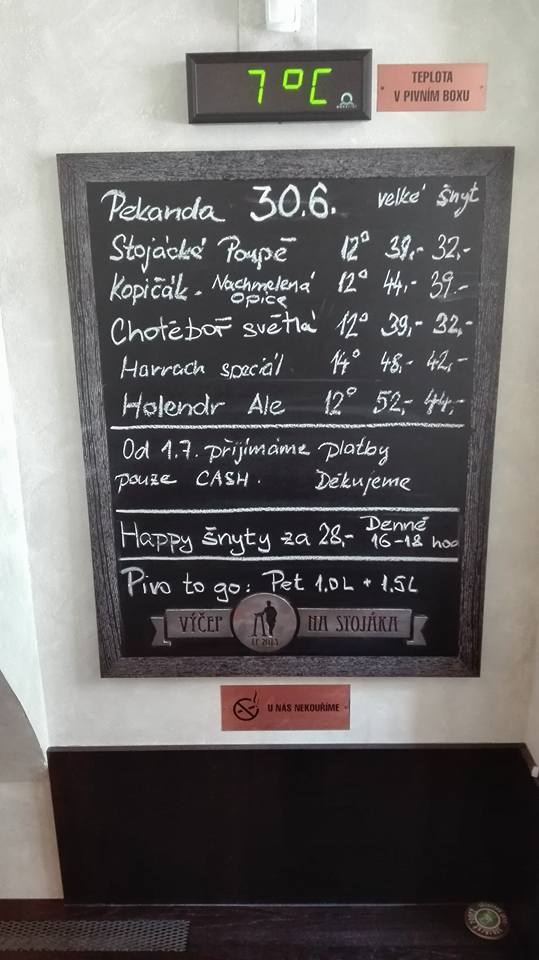 7°C
TEPLOTA
V PIVNÍM BOXU
Pekanda 30.6. velké šnyt
Stojácké Poupě 12° 39,- 32,-
Kopičák - Nachmelená Opice 12° 44,- 39,-
Chotěboř světlá 12° 39,- 32,-
Harrach speciál 14° 48,- 42,-
Holendr Ale 12° 52,- 44,-
Od 1.7. přijímáme platby
pouze CASH. Děkujeme
Happy šnyty za 28,- Denně 16-18 hod
Pivo to go: Pet 1,0L + 1,5L
VÝČEP NA STOJÁKA
U NÁS NEKOUŘÍME